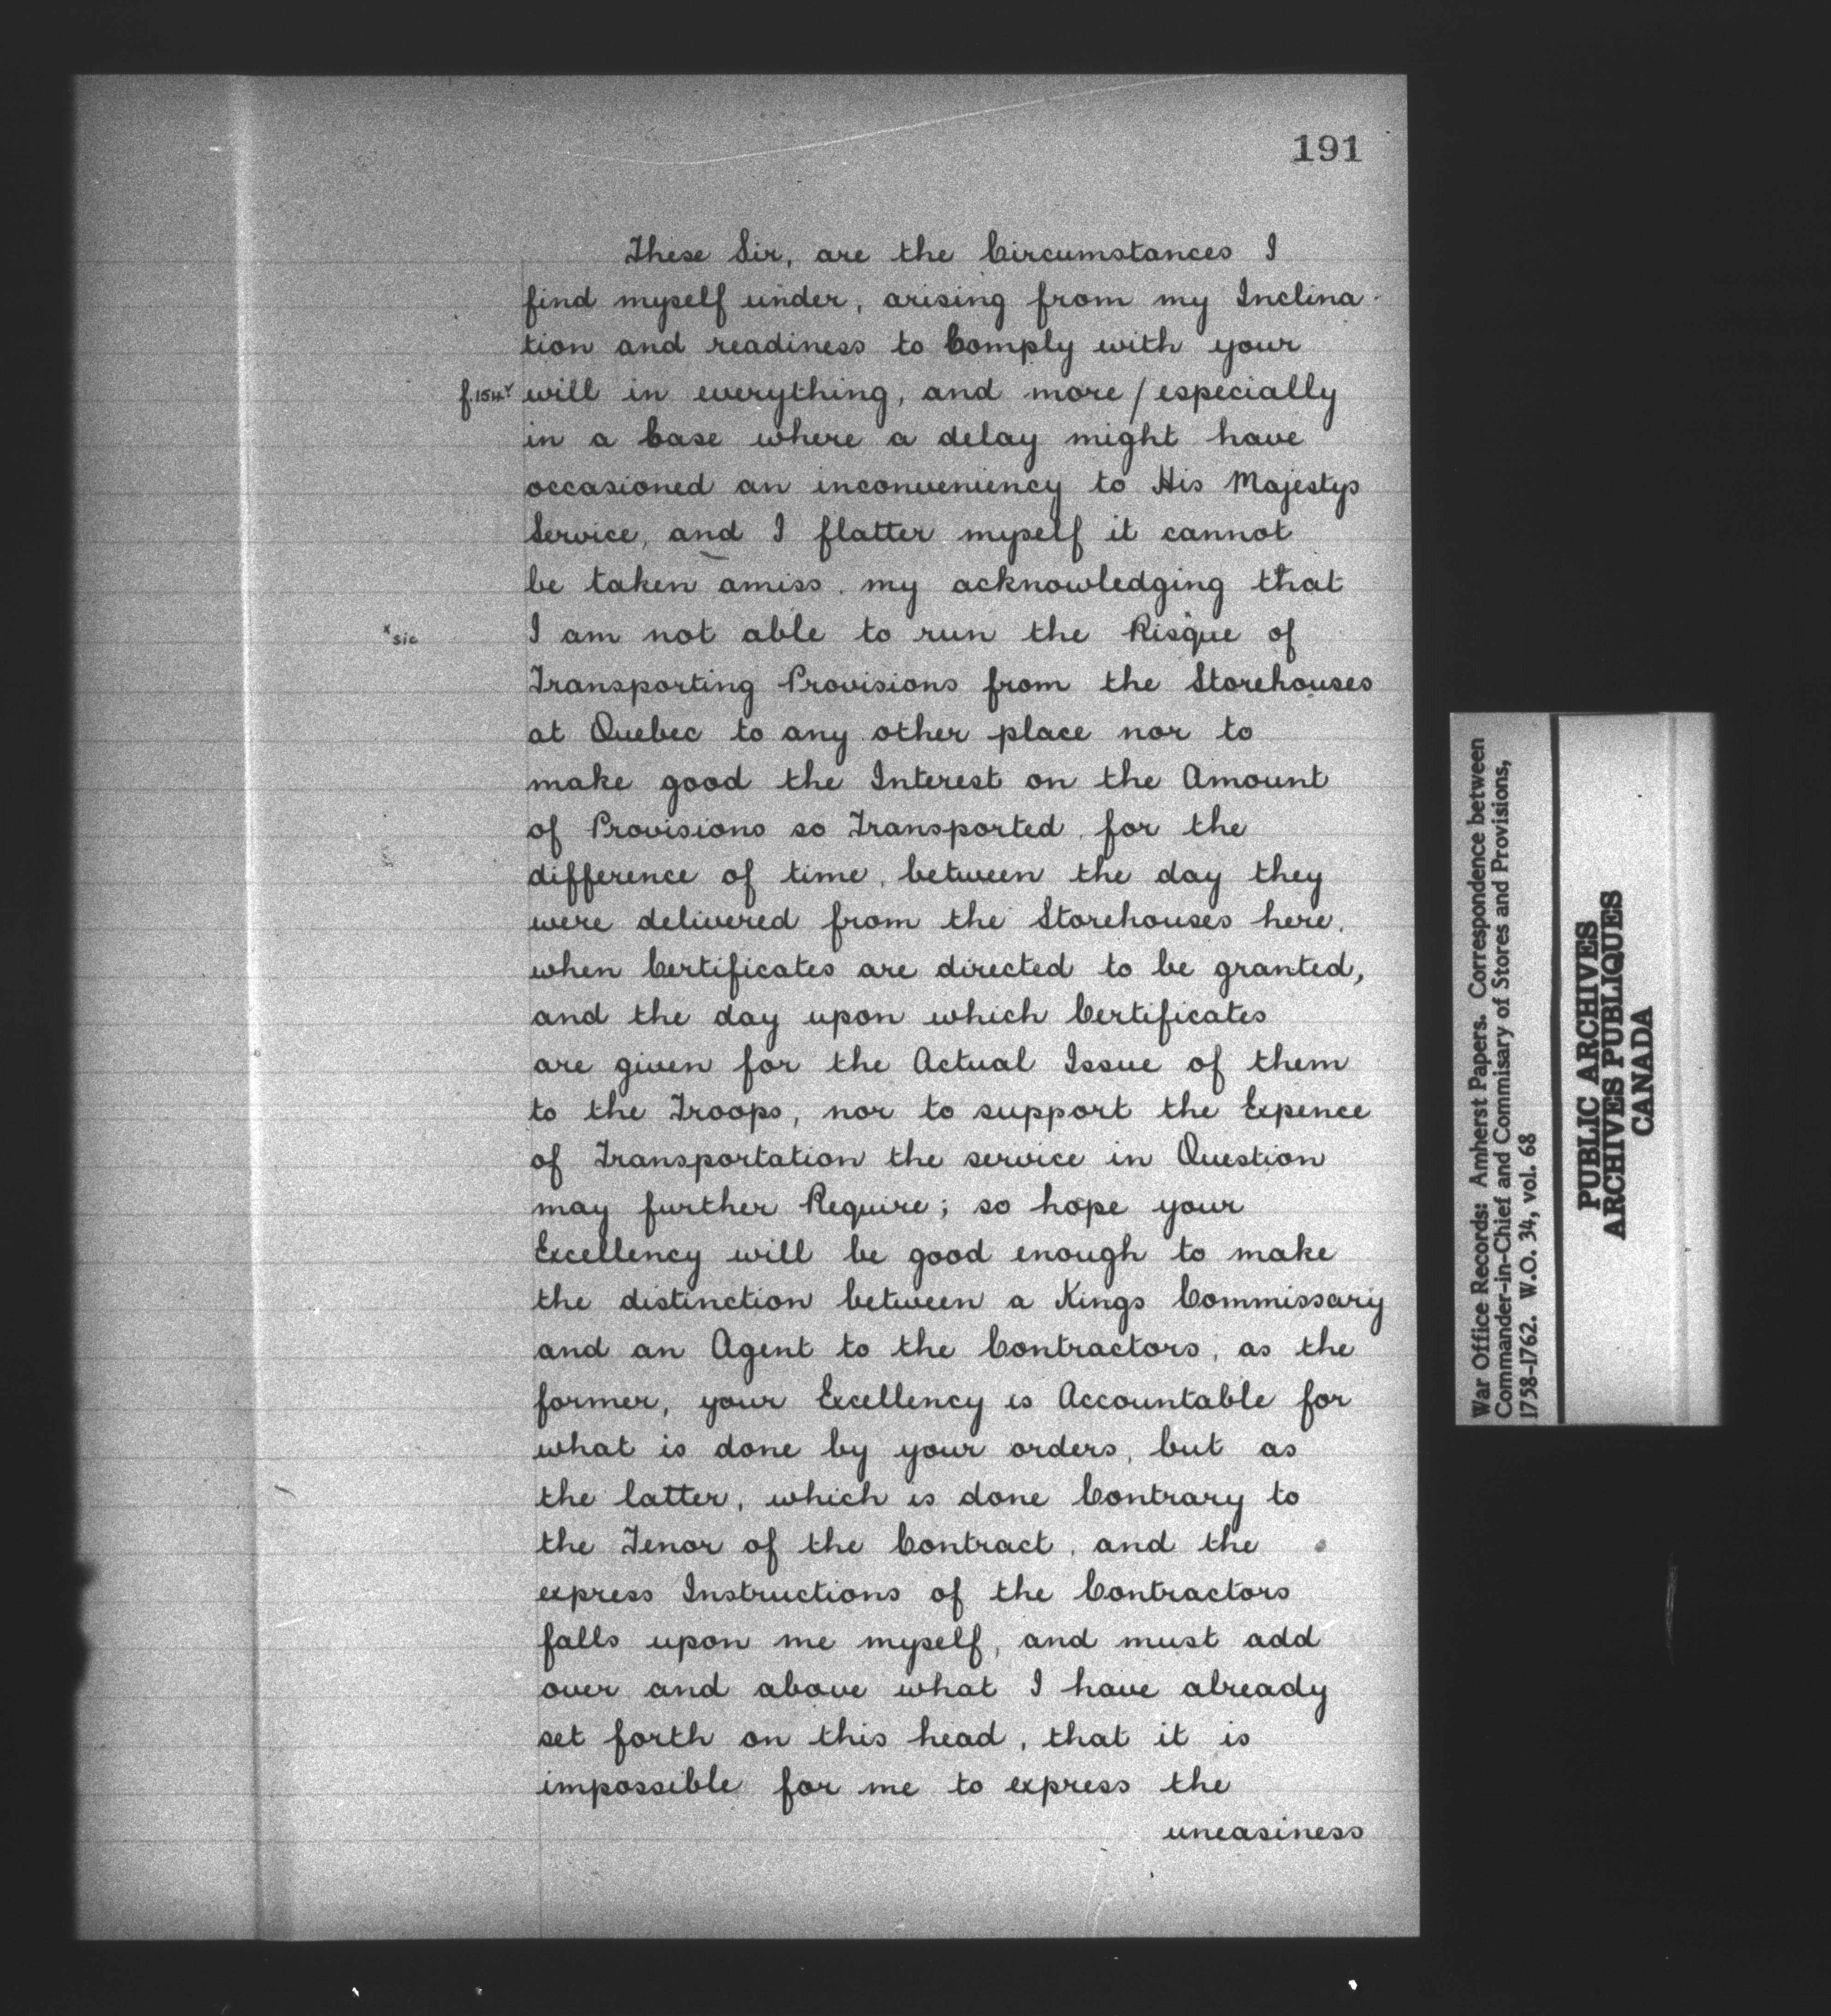 191
These Sir, are the Circumstances I
find myself under, arising from my Inclina-
tion and readiness to Comply with your
f.154v will in everything, and more / especially
in a Case where a delay might have
occasioned an inconveniency to His Majestys
Service, and I flatter myself it cannot
be taken amiss. my acknowledging that
x sic I am not able to run the Risxque of
Transporting Provisions from the Storehouses
at Quebec to any other place nor to
make good the Interest on the Amount
of Provisions so Transported, for the
difference of time, between the day they
were delivered from the Storehouses here,
when Certificates are directed to be granted,
and the day upon which Certificates
are given for the Actual Issue of them
to the Troops, nor to support the Expence
of Transportation the service in Question
may further Require; so hope your
Excellency will be good enough to make
the distinction between a Kings Commissary
and an Agent to the Contractors, as the
former, your Excellency is Accountable for
what is done by your orders, but as
the latter, which is done Contrary to
the Tenor of the Contract, and the
express Instructions of the Contractors
falls upon me myself, and must add
over and above what I have already
set forth on this head, that it is
impossible for me to express the
uneasiness
War Office Records: Amherst Papers. Correspondence between
Commander-in-Chief and Commisary of Stores and Provisions,
1758-1762. W.O. 34, vol. 68
PUBLIC ARCHIVES
ARCHIVES PUBLIQUES
CANADA